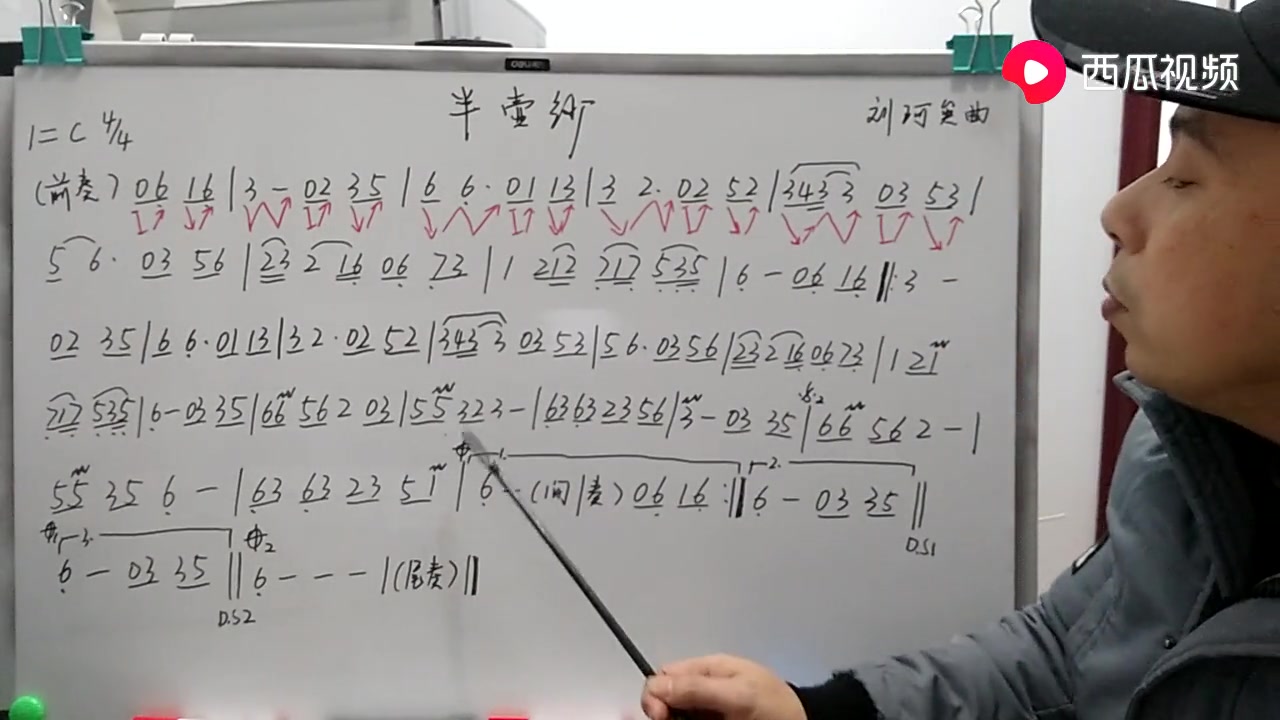 西瓜视频
半壶纱
1=C 4/4
刘珂矣曲
(前奏) 06 16 | 3 - 02 35 | 6 6· 01 13 | 3 2· 02 52 | 343 3 03 53 |
5 6· 03 56 | 23 2 16 06 72 | 1 212 717 535 | 6 - 06 16 ‖: 3 -
02 35 | 6 6· 01 13 | 3 2· 02 52 | 343 3 03 53 | 5 6· 03 56 | 23 2 16 06 72 | 1 21
717 535 | 6 - 03 35 | 66 56 2 03 | 55 32 3 - | 63 63 23 56 | 3 - 03 35 | 66 56 2 - |
55 35 6 - | 63 63 23 51 | 6 - (间|奏) 06 16 :‖ 6 - 03 35 ‖
D.S1
6 - 03 35 ‖ 6 - - - | (尾奏) ‖
D.S2